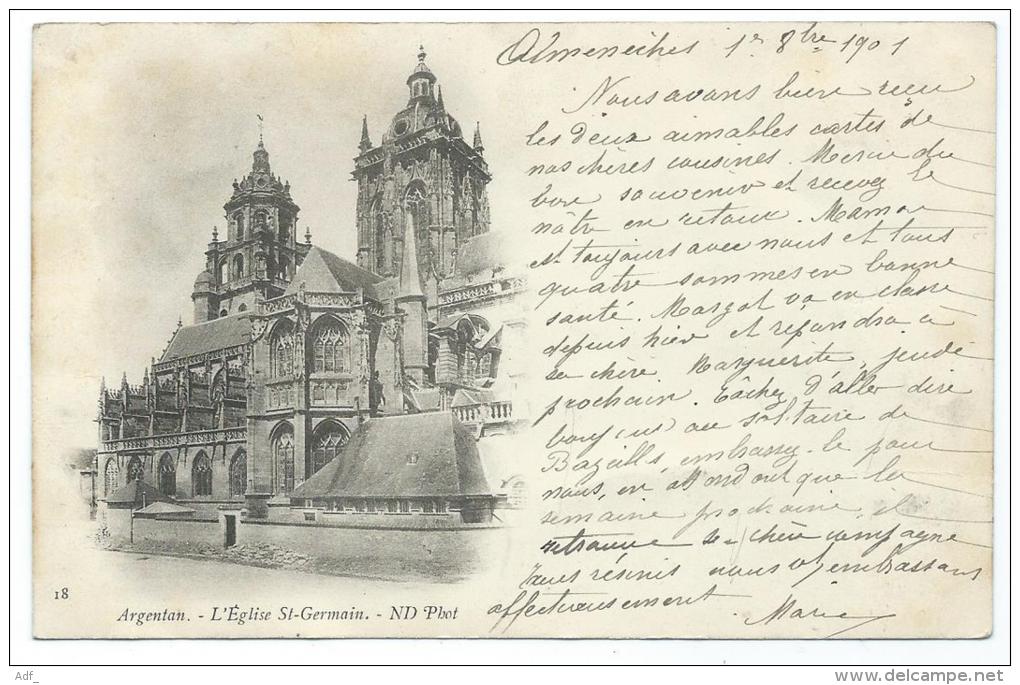 Almenêches 1er 8bre 1901
Nous avons bien reçu
les deux aimables cartes de
nos chères cousines. Merci du
bon souvenir et recevez le
nôtre en retour. Maman
est toujours avec nous et tous
quatre sommes en bonne
santé. Margot va en classe
depuis hier et répondra à
sa chère Marguerite, jeudi
prochain. Tâchez d'aller dire
bonjour au solitaire de
embrassez-le pour
nous, en attendant que la
semaine prochaine, il
retrouve sa chère compagne
Tous réunis nous vs embrassons
affectueusement. Marie
18
Argentan. - L'Église St-Germain. - ND Phot
Adf_
www.delcampe.net